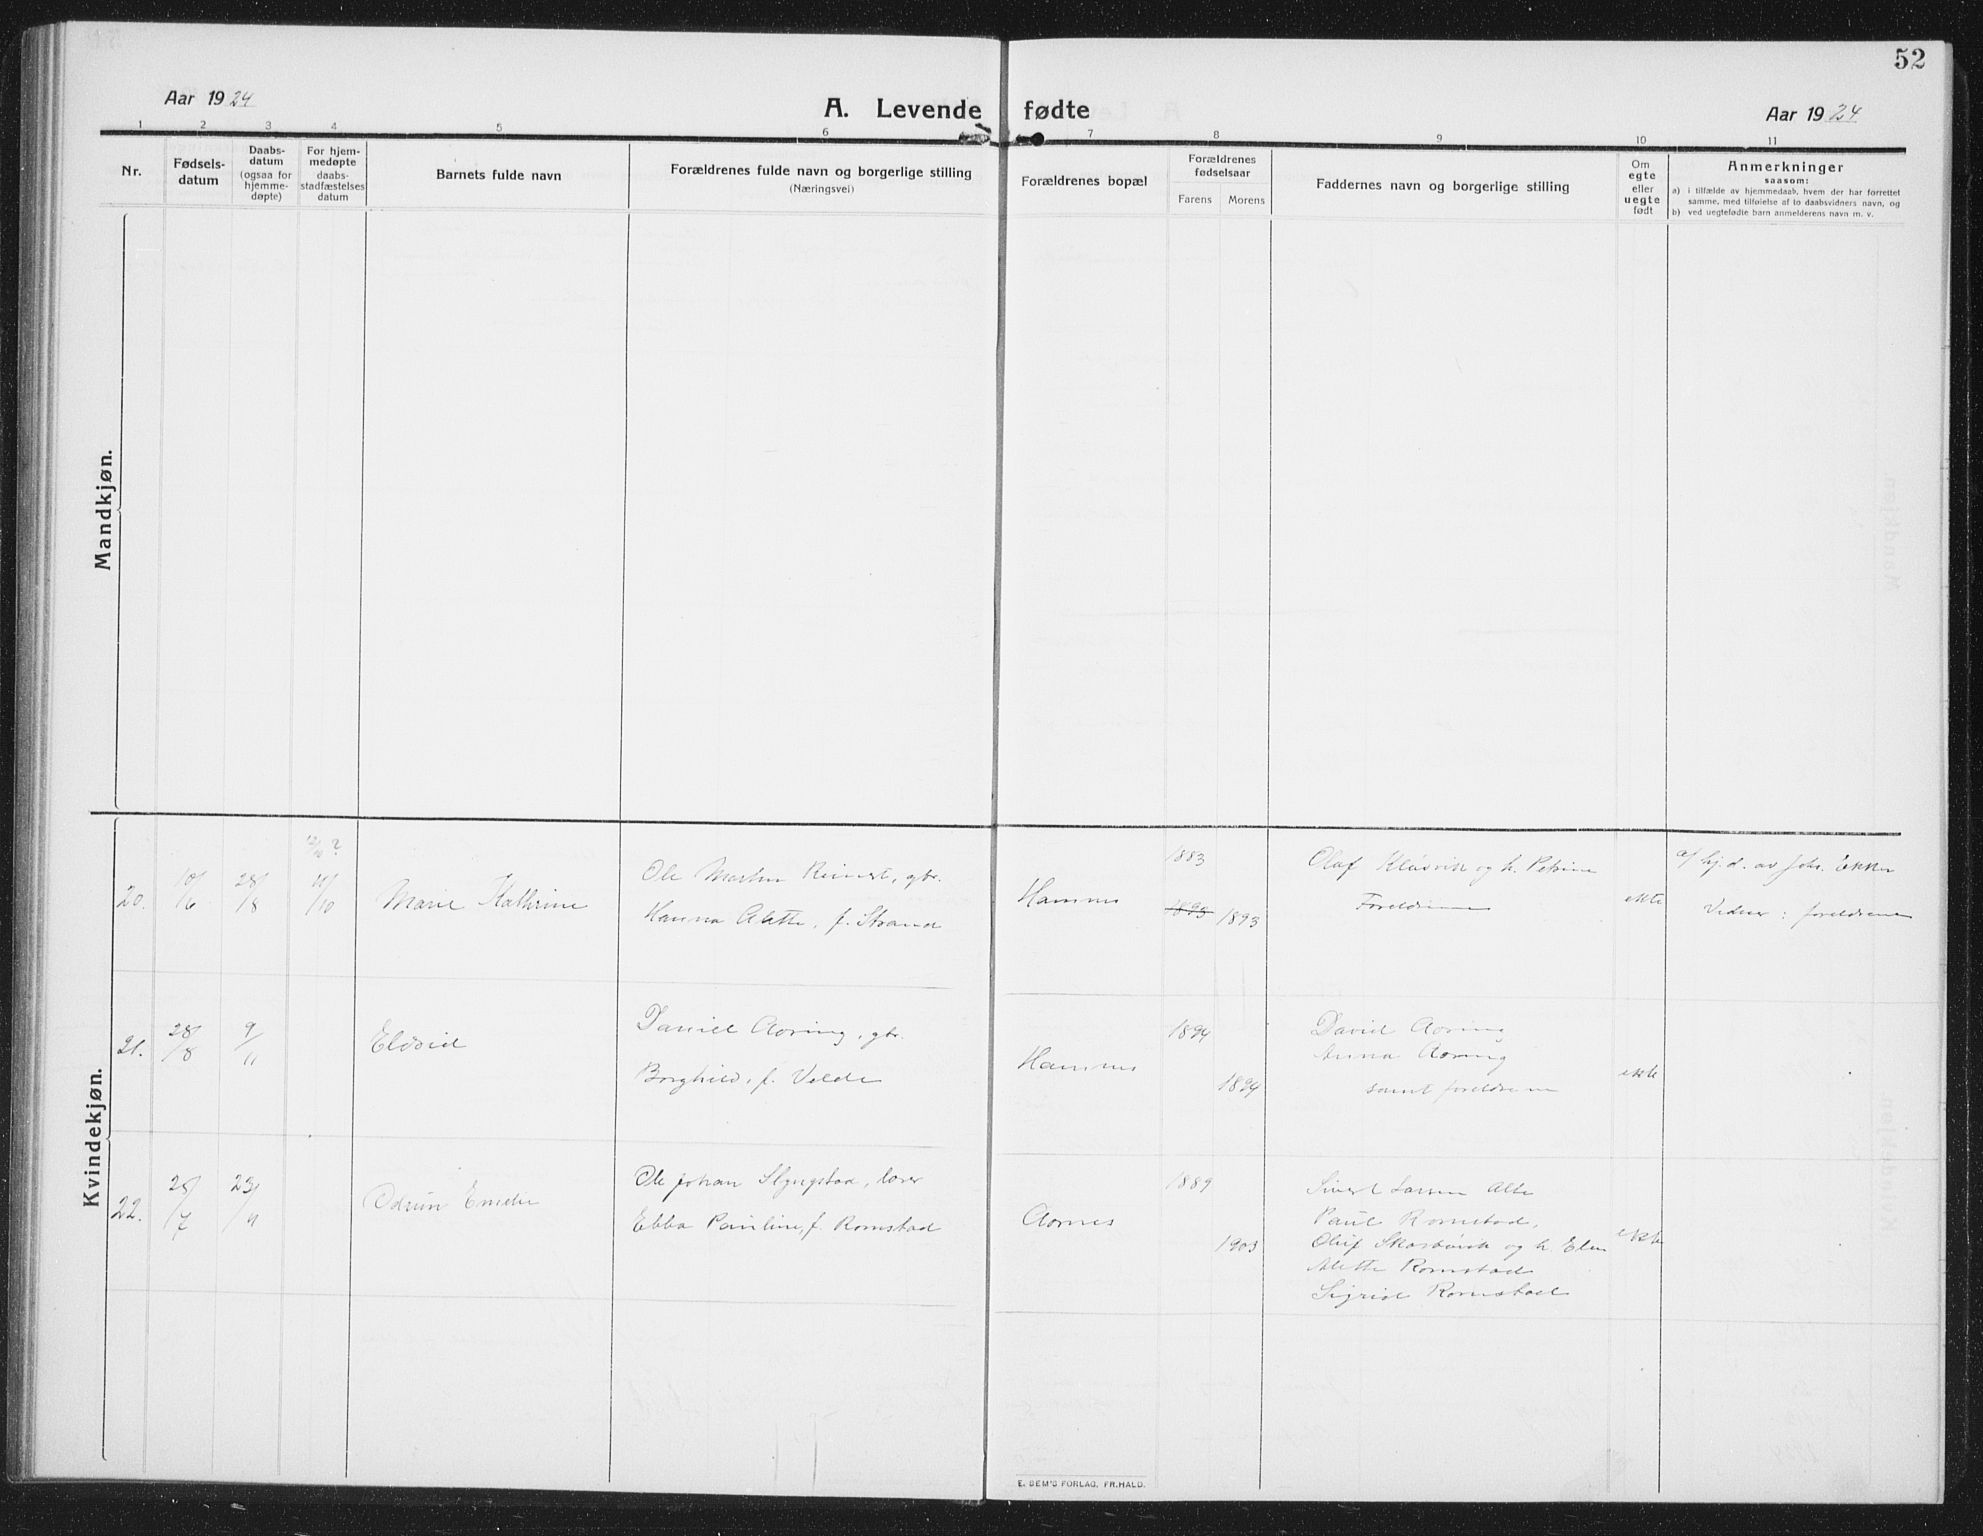 52
Aar 1924
A. Levende fødte
Aar 1924
1 2 3 4 5 6 7 8 9 10 11
Nr.
Fødsels-
datum
Daabs-
datum
(ogsaa for
hjemme-
døpte)
For hjem-
medøpte
daabs-
stadfæstelses
datum
Barnets fulde navn
Forældrenes fulde navn og borgerlige stilling
(Næringsvei)
Forældrenes bopæl
Forældrenes
fødselsaar
Farens Morens
Faddernes navn og borgerlige stilling
Om
egte
eller
uegte
født
Anmerkninger
saasom:
a) i tilfælde av hjemmedaab, hvem der har forrettet
samme, med tilføielse af to daabsvidners navn, og
b) ved uegtefødte barn anmelderens navn m. v.
Mandkjøn.
Kvindekjøn.
20. 10/6 28/8 12/10? 11/10
Marie Kathrine
Ole Martin Reinert, gbr.
Hanna Alette, f. Strand
Hamnes
1883
1893 1893
Olaf Kløsvik og h. Petrine
Foreldrene
ekte
a/ hj.d. av Johs. Ekker
Vidner: foreldrene
21. 28/8 9/11
Eldbid
Daniel Aoring, gbr.
Borghild, f. Velde
Hamnes
1894
1894
David Aoring
Anna Aoring
samt foreldrene
ekte
22. 25/7 23/11
Odrun Emelie
Ole Johan Slyngstad, lærer
Ebba Pauline, f. Romstad
Aarnes
1889
1903
Sivert Larsen Alte
Paul Romstad,
Oluf Skarsvik og h. Elen
Alette Romstad
Sigrid Romstad
ekte
E. SEM'S FORLAG, FR.HALD.